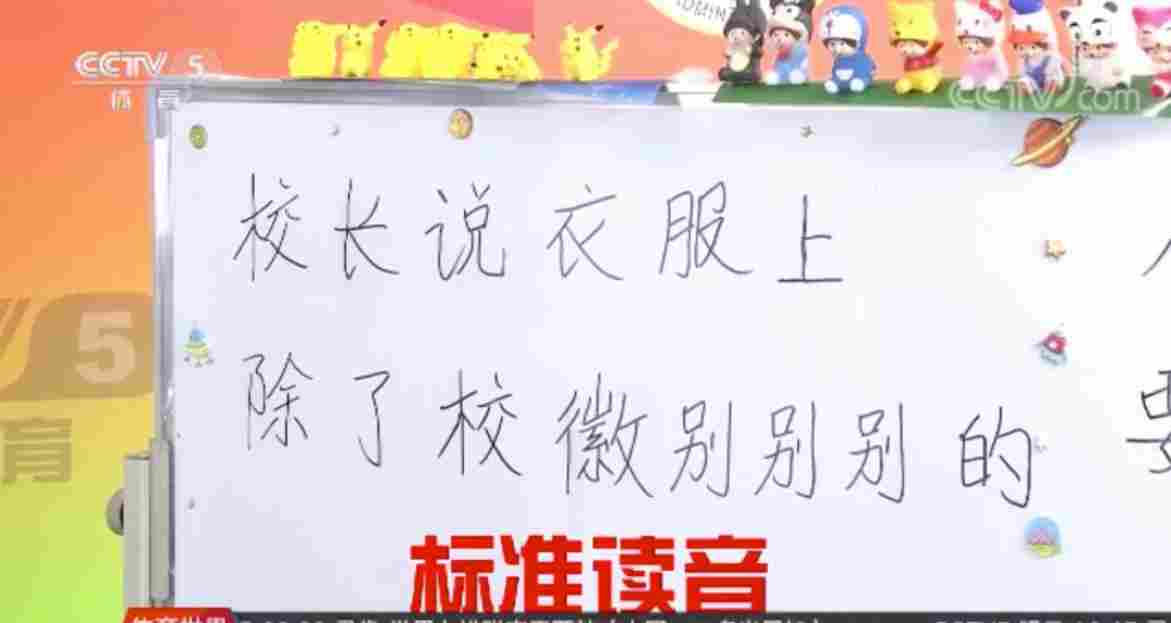 CCTV 5
体育
CCTV.com
5
育
校长说衣服上
除了校徽别别别的
标准读音
体育世界